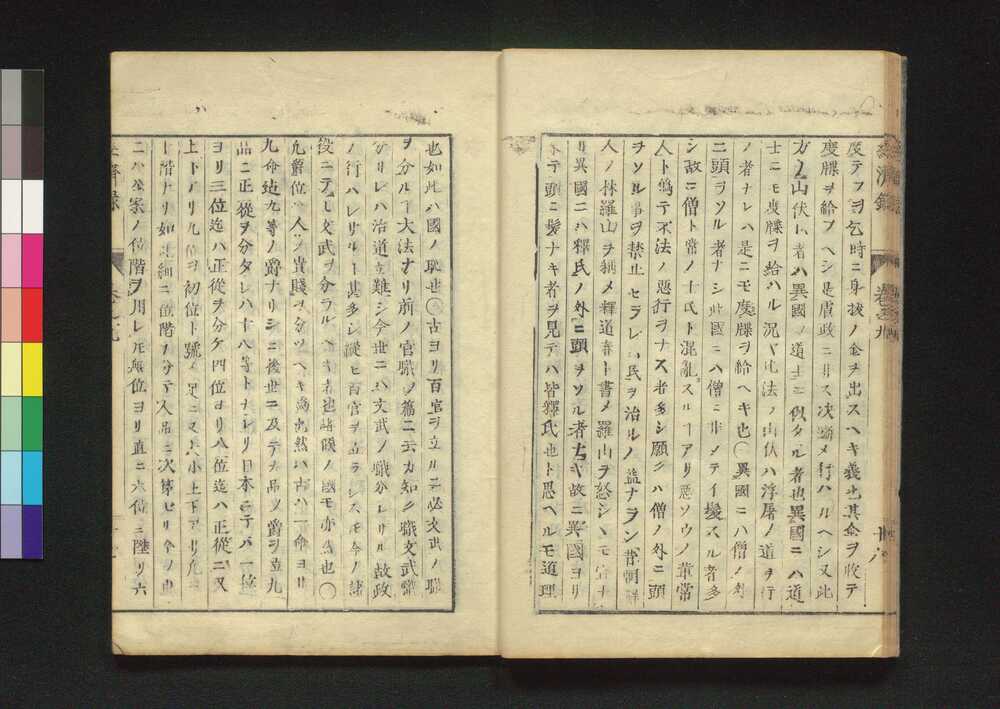 度テフヲ乞時ニ身抜ノ金ヲ出スヘキ義也其金ヲ收テ
度牒ヲ給フヘシ是廣政ニリス次第メ行ハルヘシ又此
方ノ山伏ト者ハ異國ノ道士ニ似タル者也異國ニハ道
士ニモ度牒ヲ給ハル況ヤ此法ノ山伏ハ浮屠ノ道ヲ行
ノ者ナレハ是ニモ度牒ヲ給ヘキ也〇異國ニハ僧ノ外
ニ頭ヲソル者ナシ此國ニハ僧ニ非メテイ髪スル者多
シ故ニ僧ト常ノ士民ト混亂スルーアリ惡ソウノ輩常
人ト偽テ不法ノ惡行ヲナス者多シ願クハ僧ノ外ニ頭
ヲソル事ヲ禁止セラレハ民ヲ治ルノ益ナラン昔朝鮮
人ノ林羅山ヲ稱メ釋道春ト書メ羅山ヲ怒シ
リ異國ニハ釋氏ノ外ニ頭ヲソル者ナキ故ニ異國ヨリ
テ頭ニ髪ナキ者ヲ見テハ皆釋氏也ト思ヘルモ道理
也如此ハ國ノ耻也〇古ヨリ百官ヲ立ルニ必文武ノ職
ヲ分ルー大法ナリ前ノ官職ノ篇ニ云カ如ク職文武職
分リレハ治道立難シ今世ニハ文武ノ職分レリル故政
ノ行ハレリルー甚多シ縦ヒ百官ヲ立ラレスモ今ノ諸
役ニテモ文武ヲ分ラルヘキ者也時候ノ國モ亦然也〇
凢爵位ハ人ノ貴賤ヲ分ツヘキ為也然ハ古ハ一命ヨリ
九命迠九等ノ爵ナリシニ後世ニ及テ九品ノ爵ヲ立九
品ニ正從ヲ分タレハ十八等トナレリ日本ニテハ一位
ヨリ三位迠ハ正從ヲ分ケ四位ヨリ八位迠ハ正從ニ又
上下アリ九位ヲ初位ト號ノ是ニ又大小上下アリ凢三
十階ナリ如此細ニ位階ヲ分テ人品ニ次第セリ今ノ世
ニハ公家ノ位階ヲ用レ𪜈無位ヨリ直ニ六位ニ陞リ六
經濟録
卷之九
十八